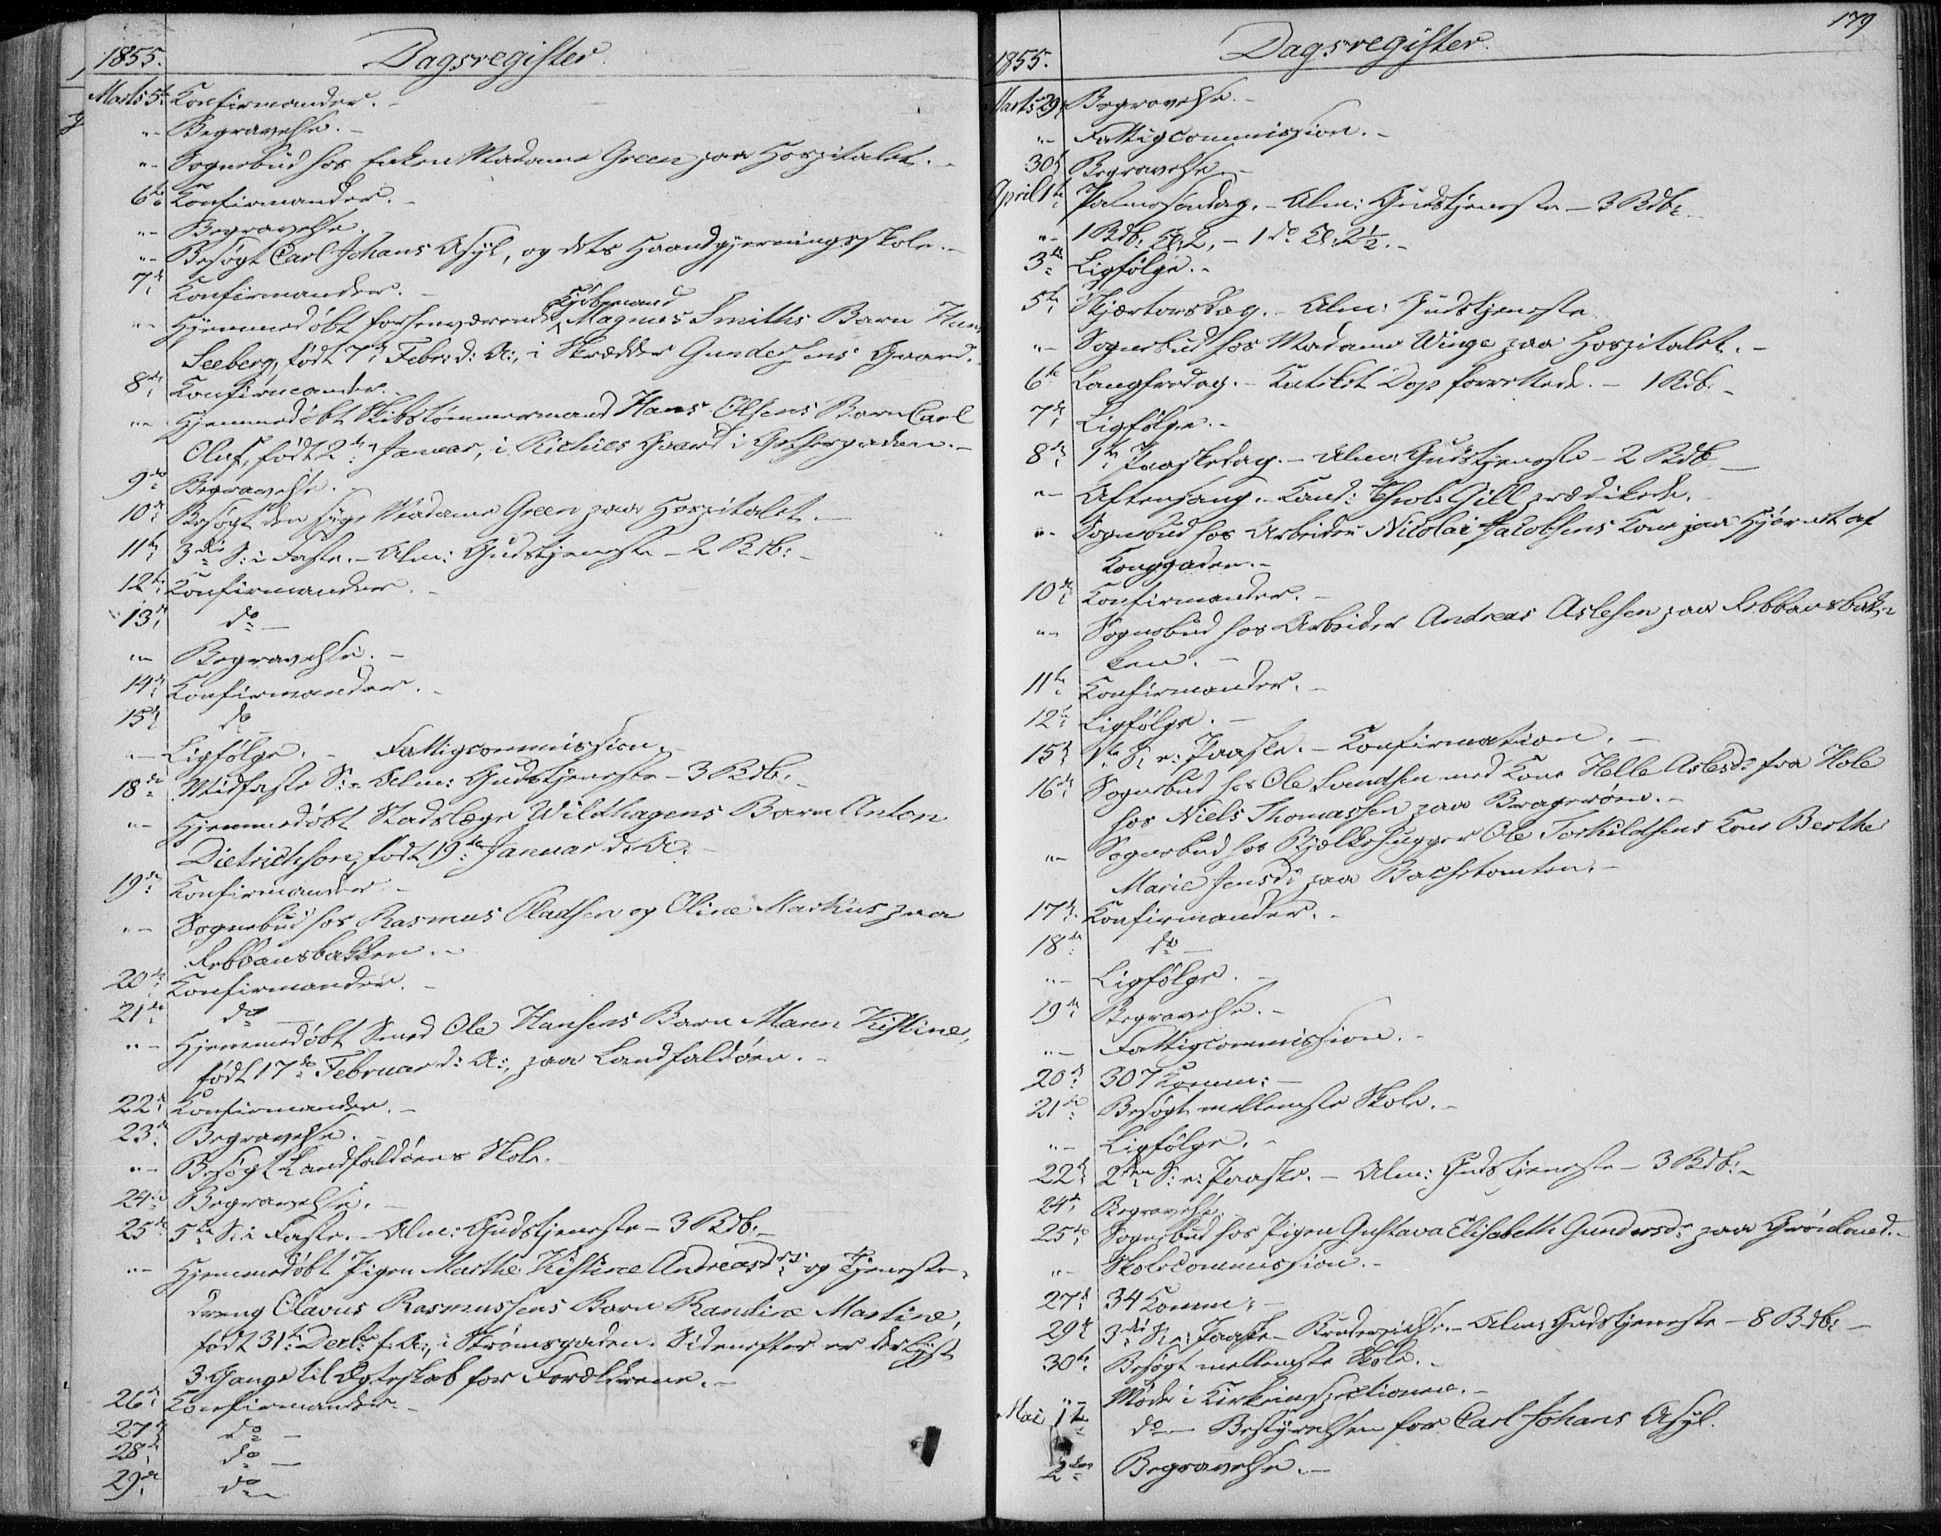 1855. Dagsregister.
Marts 5te Konfirmander. -
"- Begravelse. -
"- Sognebud hos Enken Madame Green paa Hospitalet. -
6te Konfirmander. -
"- Begravelse.
"- Besøgt Carl Johans Asyl, og dets Haandgjerningsskole. -
7de Konfirmander. -
Kjøbmand
"- Hjemmedøbt forhenværende Magnus Smiths Barn Hans
Seeberg, født 7de Febr: d: A:, i Skrædder Gundersens Gaard.
8de Konfirmander. -
"- Hjemmedøbt Skibstømmermand Hans Olsens Barn Carl
Oluf, født 2den Januar, i Richies Gaard i Gethergaden. -
9de Begravelse. -
10de Besøgt den syge Madame Green paa Hospitalet. -
11te 3die S: i Faste. - Alm: Gudstjeneste - 2 Bdb: -
12te Konfirmander. -
13de do -
"- Begravelse. -
14de Konfirmander. -
15de do -
"- Ligfølge. - Fattigcommission. -
18de Midfaste S: - Alm: Gudstjeneste - 3 Bdb: -
"- Hjemmedøbt Stadslæge Wildhagens Barn Anton
Dietrichson, født 19de Januar d: A: -
19de Konfirmander. -
"- Sognebud hos Rasmus Oladsen og Oline Markus paa
Rebbansbakken. -
20de Konfirmander. -
21de do -
"- Hjemmedøbt Smed Ole Hansens Barn Maren Kistine,
født 17de Februar d: A:, paa Landfaldøen. -
22de Konfirmander. -
23de Begravelse. -
"- Besøgt Landfaldøens Skole.
24de Begravelse. -
25de 5te S: i Faste. - Alm: Gudstjeneste - 3 Bdb: -
"- Hjemmedøbt Pigen Marthe Kistine Andreasdr og Tjeneste-
dreng Olavus Rasmussens Barn Randine Martine,
født 31te Decbr f: A:, i Strømsgaden. Sidenefter er der lyst
3 Gange til Ægteskab for Forældrene. -
26de Konfirmander. -
27de do -
28de do -
29de do -
179
1855. Dagsregister.
Marts 29de Begravelse. -
"- Fattigcommission. -
30te Begravelse. -
April 1te Palmesøndag. - Alm: Gudstjeneste - 3 Bdb: -
"- 1 Bdb: Kl: 2, - 1 do Kl: 2½. -
3die Ligfølge. -
5te Skjærtorsdag. - Alm: Gudstjeneste
"- Sognebud hos Madame Winge paa Hospitalet. -
6te Langfredag. - Kateket Dop forrettede. - 1 Bdb: -
7de Ligfølge. -
8de 1te Paaskedag. - Alm: Gudstjeneste - 2 Bdb: -
"- Aftensang. - Kand: Theol: Gill prædikede.
"- Sognebud hos Arbeider Nicolai Jacobsens Kone paa Hjørnet af
Konggaden. -
10de Konfirmander. -
"- Sognebud hos Arbeider Andreas Aslesen paa Rebbansbak-
ken. -
11te Konfirmander. -
12te Ligfølge. -
15de 1te S: e: Paaske. - Konfirmation. -
16de Sognebud hos Ole Svendsen med Kone Helle Aslesdr fra Hole
hos Niels Thomassen paa Bragerøen. -
"- Sognebud hos Bjælkehugger Ole Torkildsens Kone Berthe
Marie Jensdr paa Bachetomten. -
17de Konfirmander. -
18de do -
"- Ligfølge. -
19de Begravelse. -
"- Fattigcommission. -
20de 307 Komm: -
21de Besøgt mellemste Skole. -
"- Ligfølge. -
22de 2den S: e: Paaske. - Alm: Gudstjeneste - 3 Bdb: -
24de Begravelse. -
25de Sognebud hos Pigen Gustava Elisabeth Gundersdr paa Grønland. -
"- Skolecommission. -
27de 34 Komm: -
29de 3die S: e: Paaske. - Alm: Gudstjeneste - 8 Bdb: -
30te Besøgt mellemste Skole. -
"- Møde i Kirkeinspectionen. -
Mai 1te do - Bestyrelsen for Carl Johans Asyl.
2den Begravelse. -